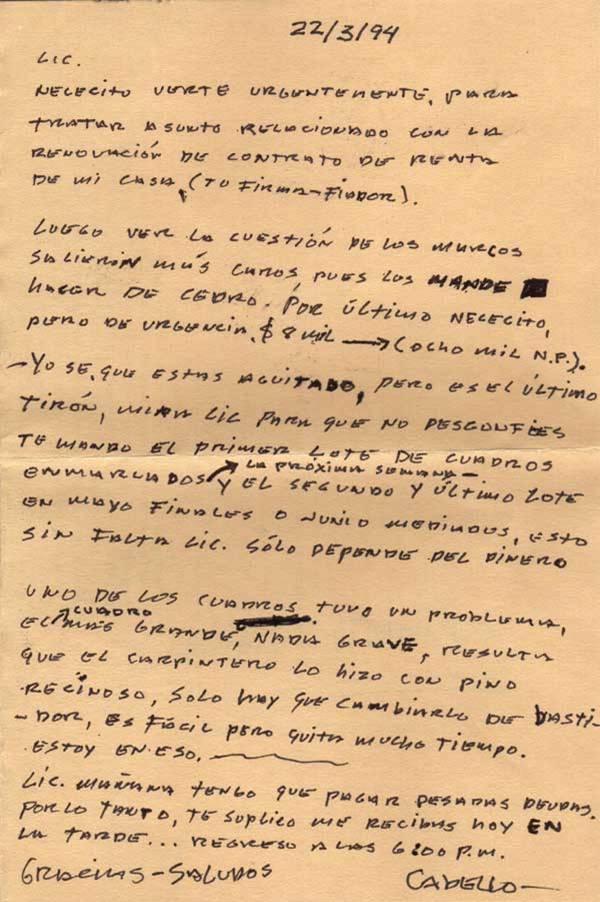 22/3/94
LIC.
NECECITO VERTE URGENTEMENTE, PARA
TRATAR ASUNTO RELACIONADO CON LA
RENOVACIÓN DE CONTRATO DE RENTA
DE MI CASA, (TU FIRMA-FIADOR).
LUEGO VER LA CUESTIÓN DE LOS MARCOS
SALIERON MÁS CAROS PUES LOS MANDE
HACER DE CEDRO. POR ÚLTIMO NECECITO,
PERO DE URGENCIA, $ 8 MIL → (OCHO MIL N.P.).
- YO SE, QUE ESTAS AGUITADO, PERO ES EL ÚLTIMO
TIRÓN, MIRA LIC PARA QUE NO DESCONFIES
TE MANDO EL PRIMER LOTE DE CUADROS
LA PRÓXIMA SEMANA -
ENMARCADOS Y EL SEGUNDO Y ÚLTIMO LOTE
EN MAYO FINALES O JUNIO MEDIADOS, ESTO
SIN FALTA LIC. SÓLO DEPENDE DEL DINERO
UNO DE LOS CUADROS TUVO UN PROBLEMA,
CUADRO
EL MÁS GRANDE, NADA GRAVE, RESULTA
QUE EL CARPINTERO LO HIZO CON PINO
RECINOSO, SOLO HAY QUE CAMBIARLO DE BASTI-
-DOR, ES FÁCIL PERO QUITA MUCHO TIEMPO.
ESTOY EN ESO.
LIC. MAÑANA TENGO QUE PAGAR PESADAS DEUDAS.
POR LO TANTO, TE SUPLICO ME RECIBAS HOY EN
LA TARDE... REGRESO A LAS 6:00 P.M.
GRACIAS - SALUDOS
CABELLO -